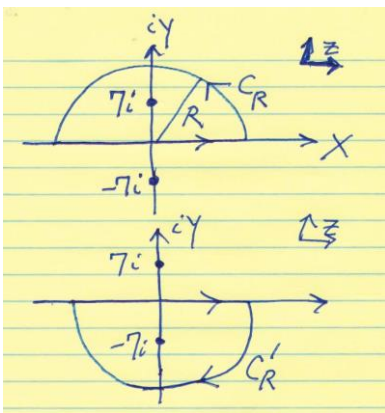 iY
z
7i
C_R
R
X
-7i
iY
z
7i
-7i
C_R'